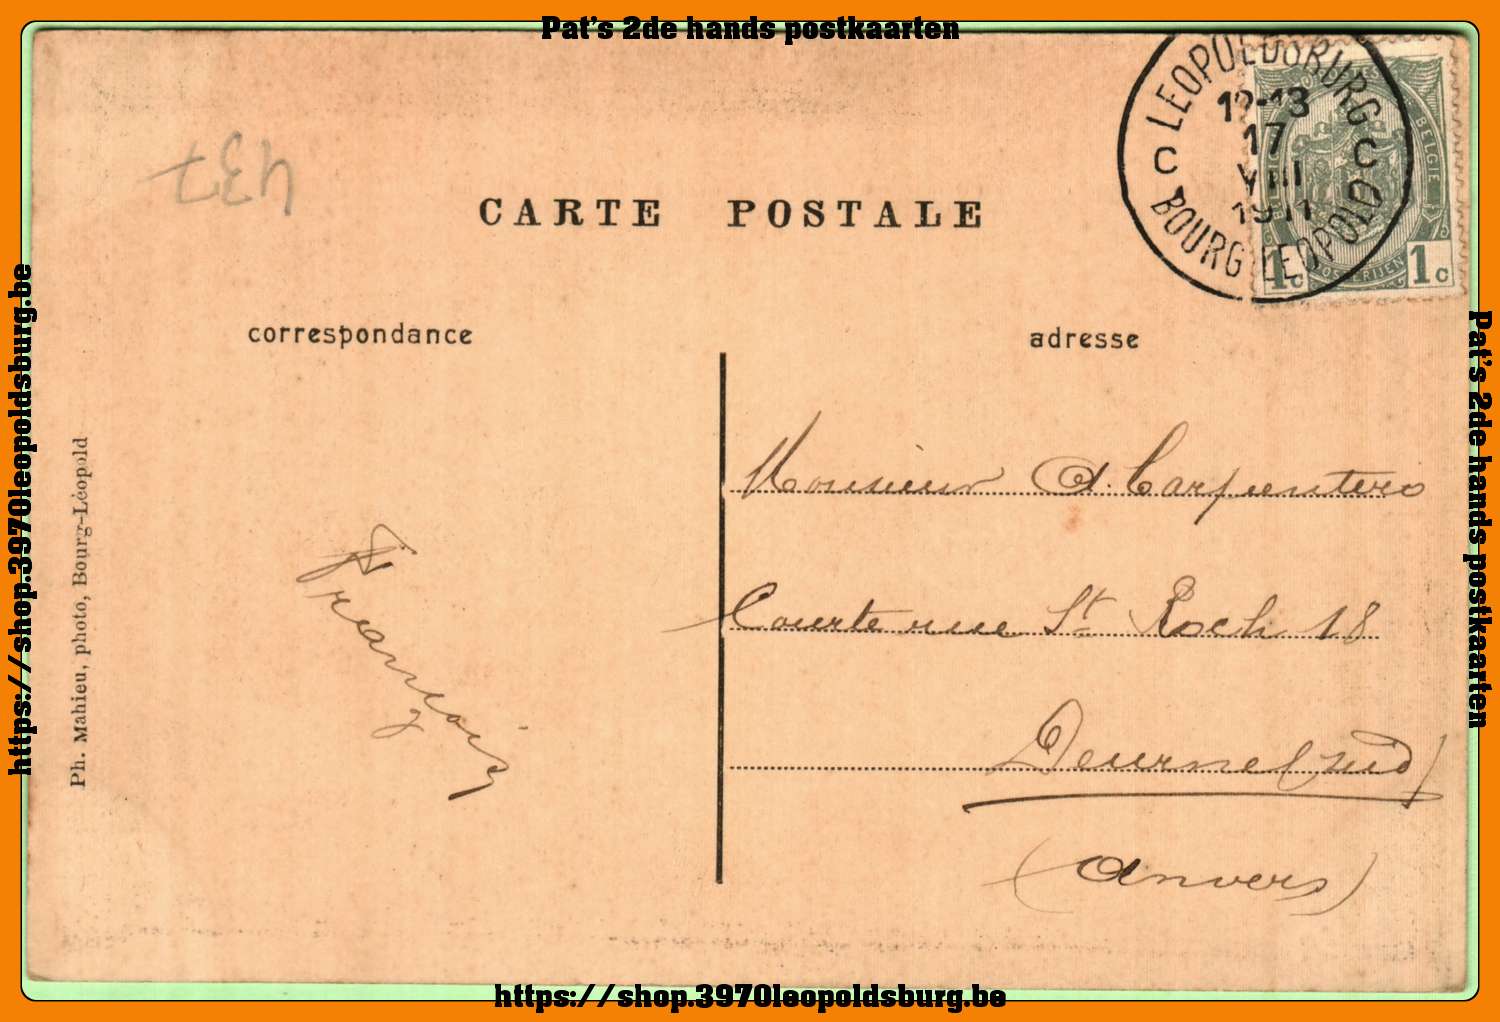 Pat's 2de hands postkaarten
LEOPOLDSBURG
12-13
17
VIII
1911
C C
BOURG-LEOPOLD
BELGIE
1c 1c
437
CARTE POSTALE
correspondance
adresse
Monsieur A. Carpentero
Courte rue St Roch 18
Deurne (sud)
(Anvers)
François
Ph. Mahieu, photo, Bourg-Léopold
https://shop.3970leopoldsburg.be
Pat's 2de hands postkaarten
https://shop.3970leopoldsburg.be